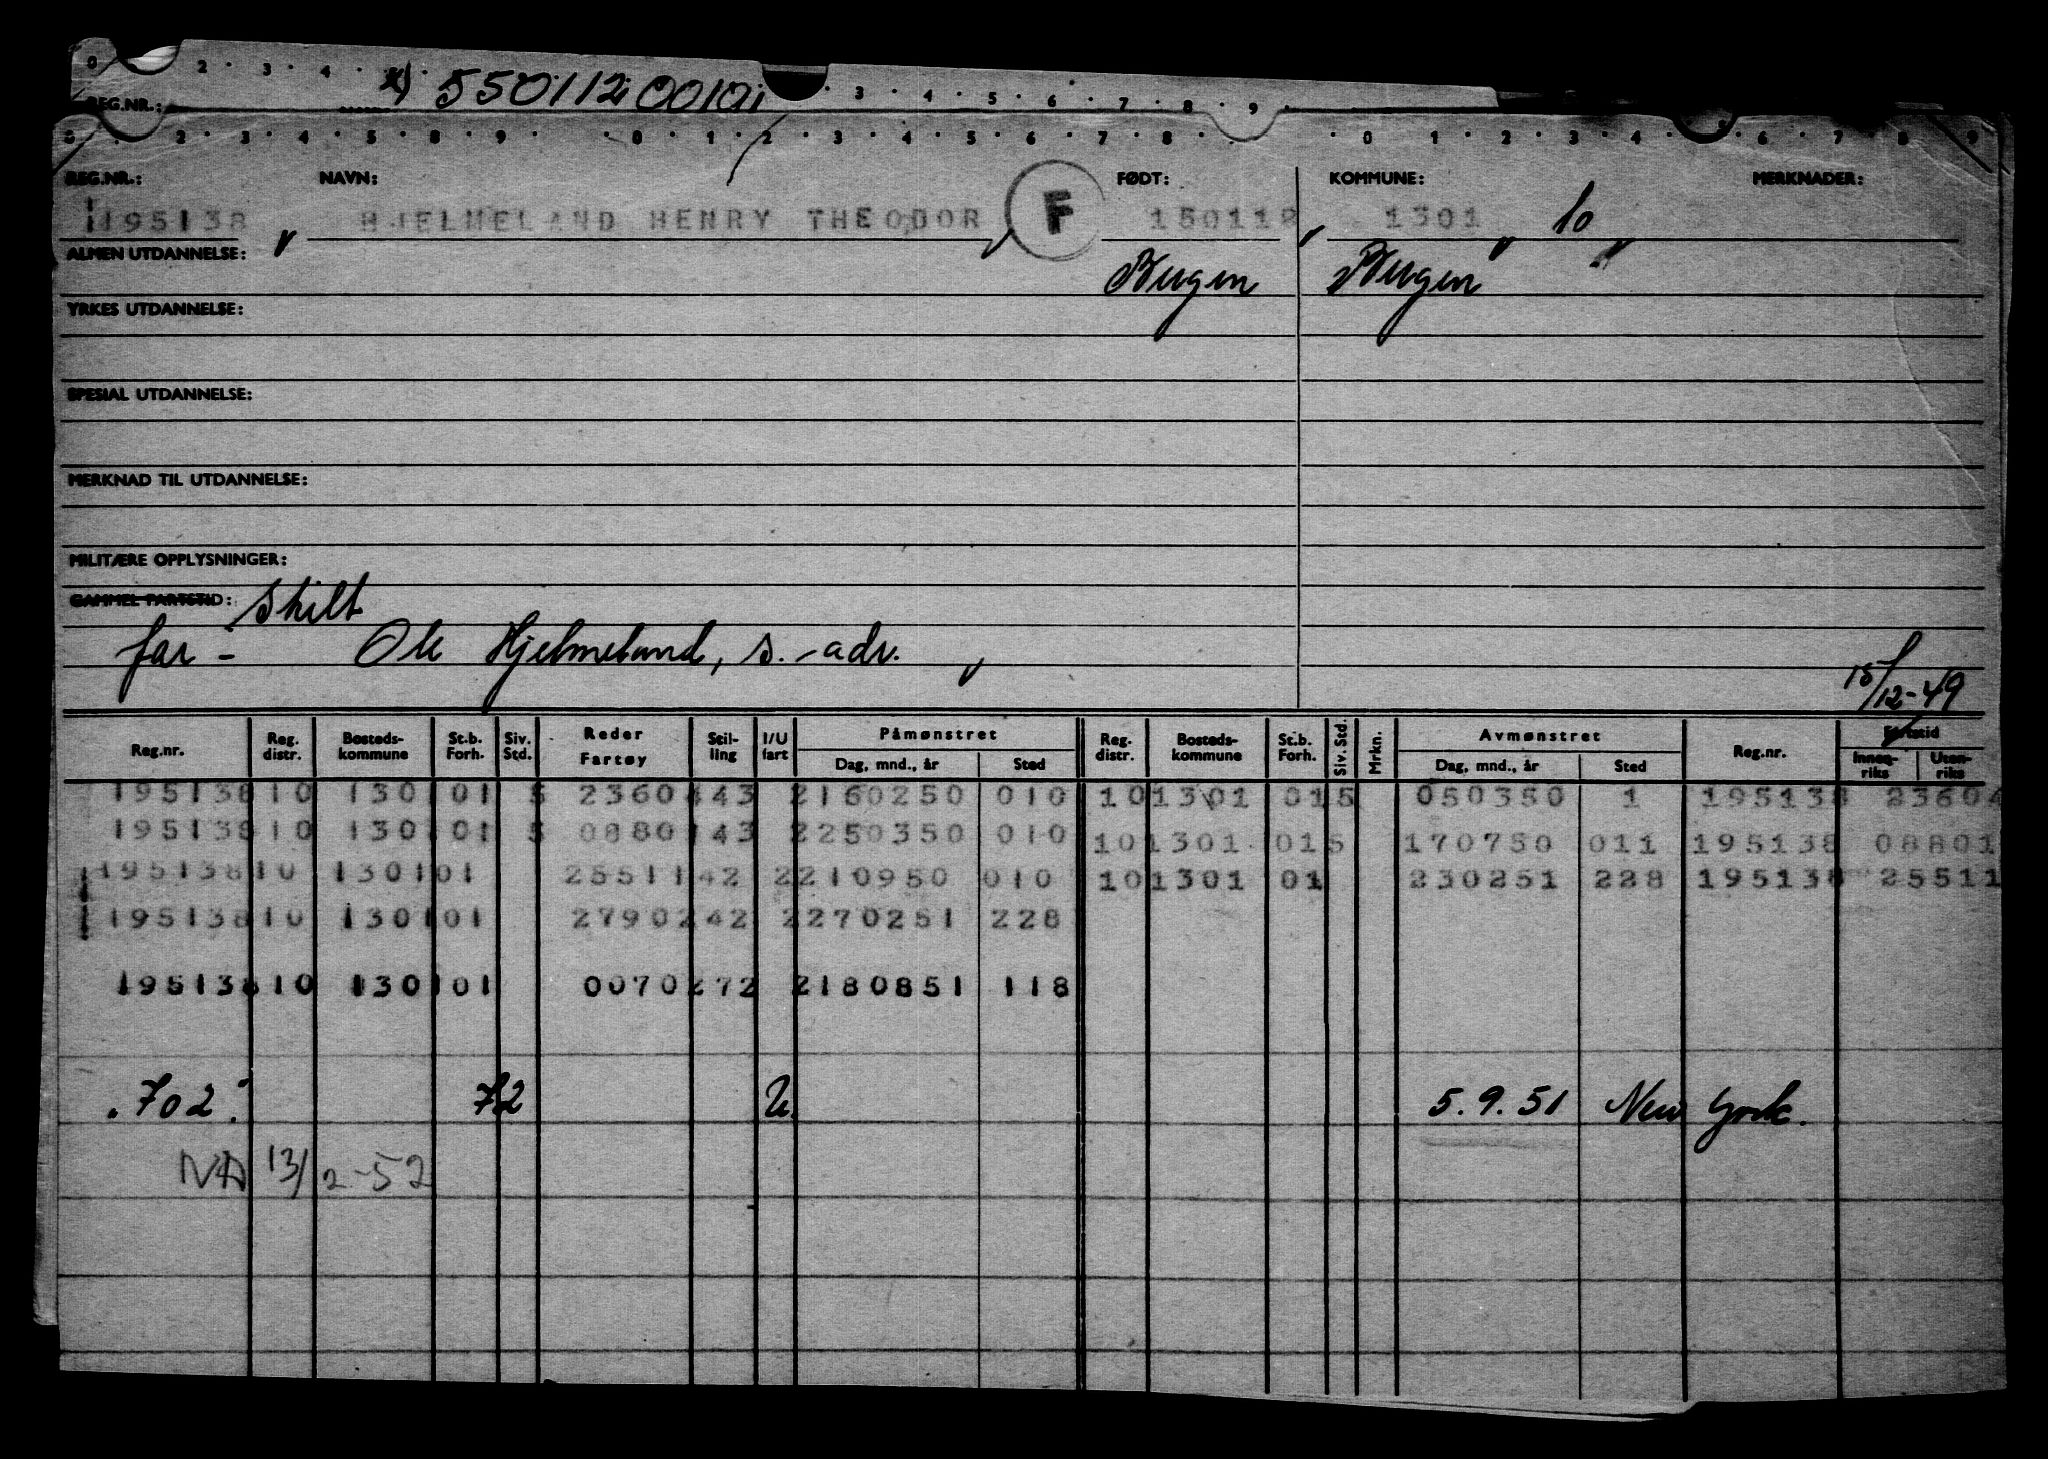 0 2 3 4 3 4 5 6 7 8 9
REG.NR.: x) 550112 00101
0 2 3 4 5 8 9 0 1 2 3 4 5 6 7 8 0 1 2 3 4 6 7 8 9
REG.NR.: NAVN: FØDT: KOMMUNE: MERKNADER:
195138 HJELMELAND HENRY THEODOR F 150112 1301 10
ALMEN UTDANNELSE: Bergen Bergen
YRKES UTDANNELSE:
SPESIAL UTDANNELSE:
MERKNAD TIL UTDANNELSE:
MILITÆRE OPPLYSNINGER:
GAMMEL FARTSTID: Skilt
far - Ole Hjelmeland, s.-adr.
15/12-49
Reg.nr. Reg. distr. Bosteds-kommune St.b. Forh. Siv. Std. Reder Fartøy Stil-ling I/U fart Påmønstret Dag, mnd., år Sted Reg. distr. Bosteds-kommune St.b. Forh. Siv. Std. Mrkn. Avmønstret Dag, mnd., år Sted Reg.nr. Fartstid Innen-riks Uten-riks
195138 10 1301 01 5 23604 43 2 160250 010 10 1301 01 5 050350 1 195138 23604
195138 10 1301 01 5 08801 43 2 250350 010 10 1301 01 5 170750 011 195138 08801
195138 10 1301 01 25511 42 2 210950 010 10 1301 01 230251 228 195138 25511
195138 10 1301 01 27902 42 2 270251 228
195138 10 1301 01 00702 72 2 180851 118
"702" 72 U. 5.9.51 New York.
NA 13/2-52